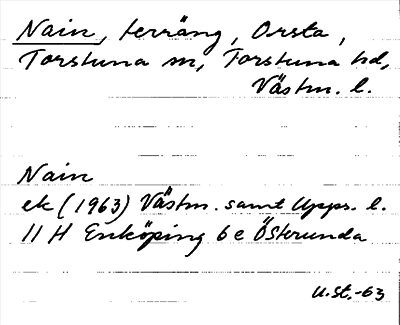 Nain, terräng, Orsta,
Torstuna sn, Torstuna hd,
Västm. l.
Nain
ek (1963) Västm. samt Upps. l.
11 H Enköping 6 e Österunda
U.st.-63